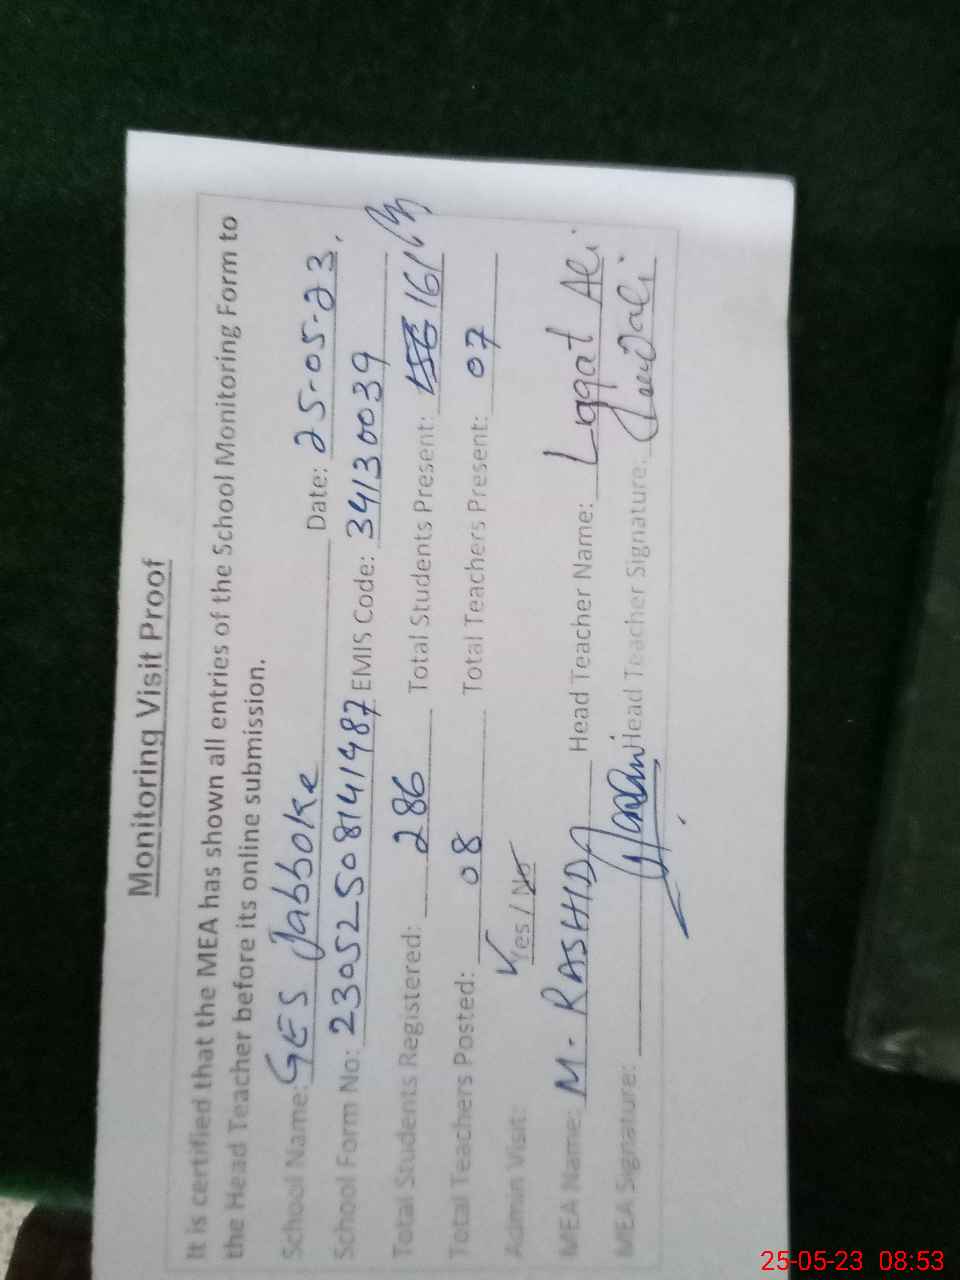 Monitoring Visit Proof
It is certified that the MEA has shown all entries of the School Monitoring Form to
the Head Teacher before its online submission.
School Name: GES Jabboke Date: 25-05-23.
School Form No: 23052508141487 EMIS Code: 34130039
Total Students Registered: 286 Total Students Present: 156 161
Total Teachers Posted: 08 Total Teachers Present: 07
Admin Visit: Yes / No
MEA Name: M. RASHID Head Teacher Name: Lqqat Ali
MEA Signature: Head Teacher Signature:
25-05-23 08:53